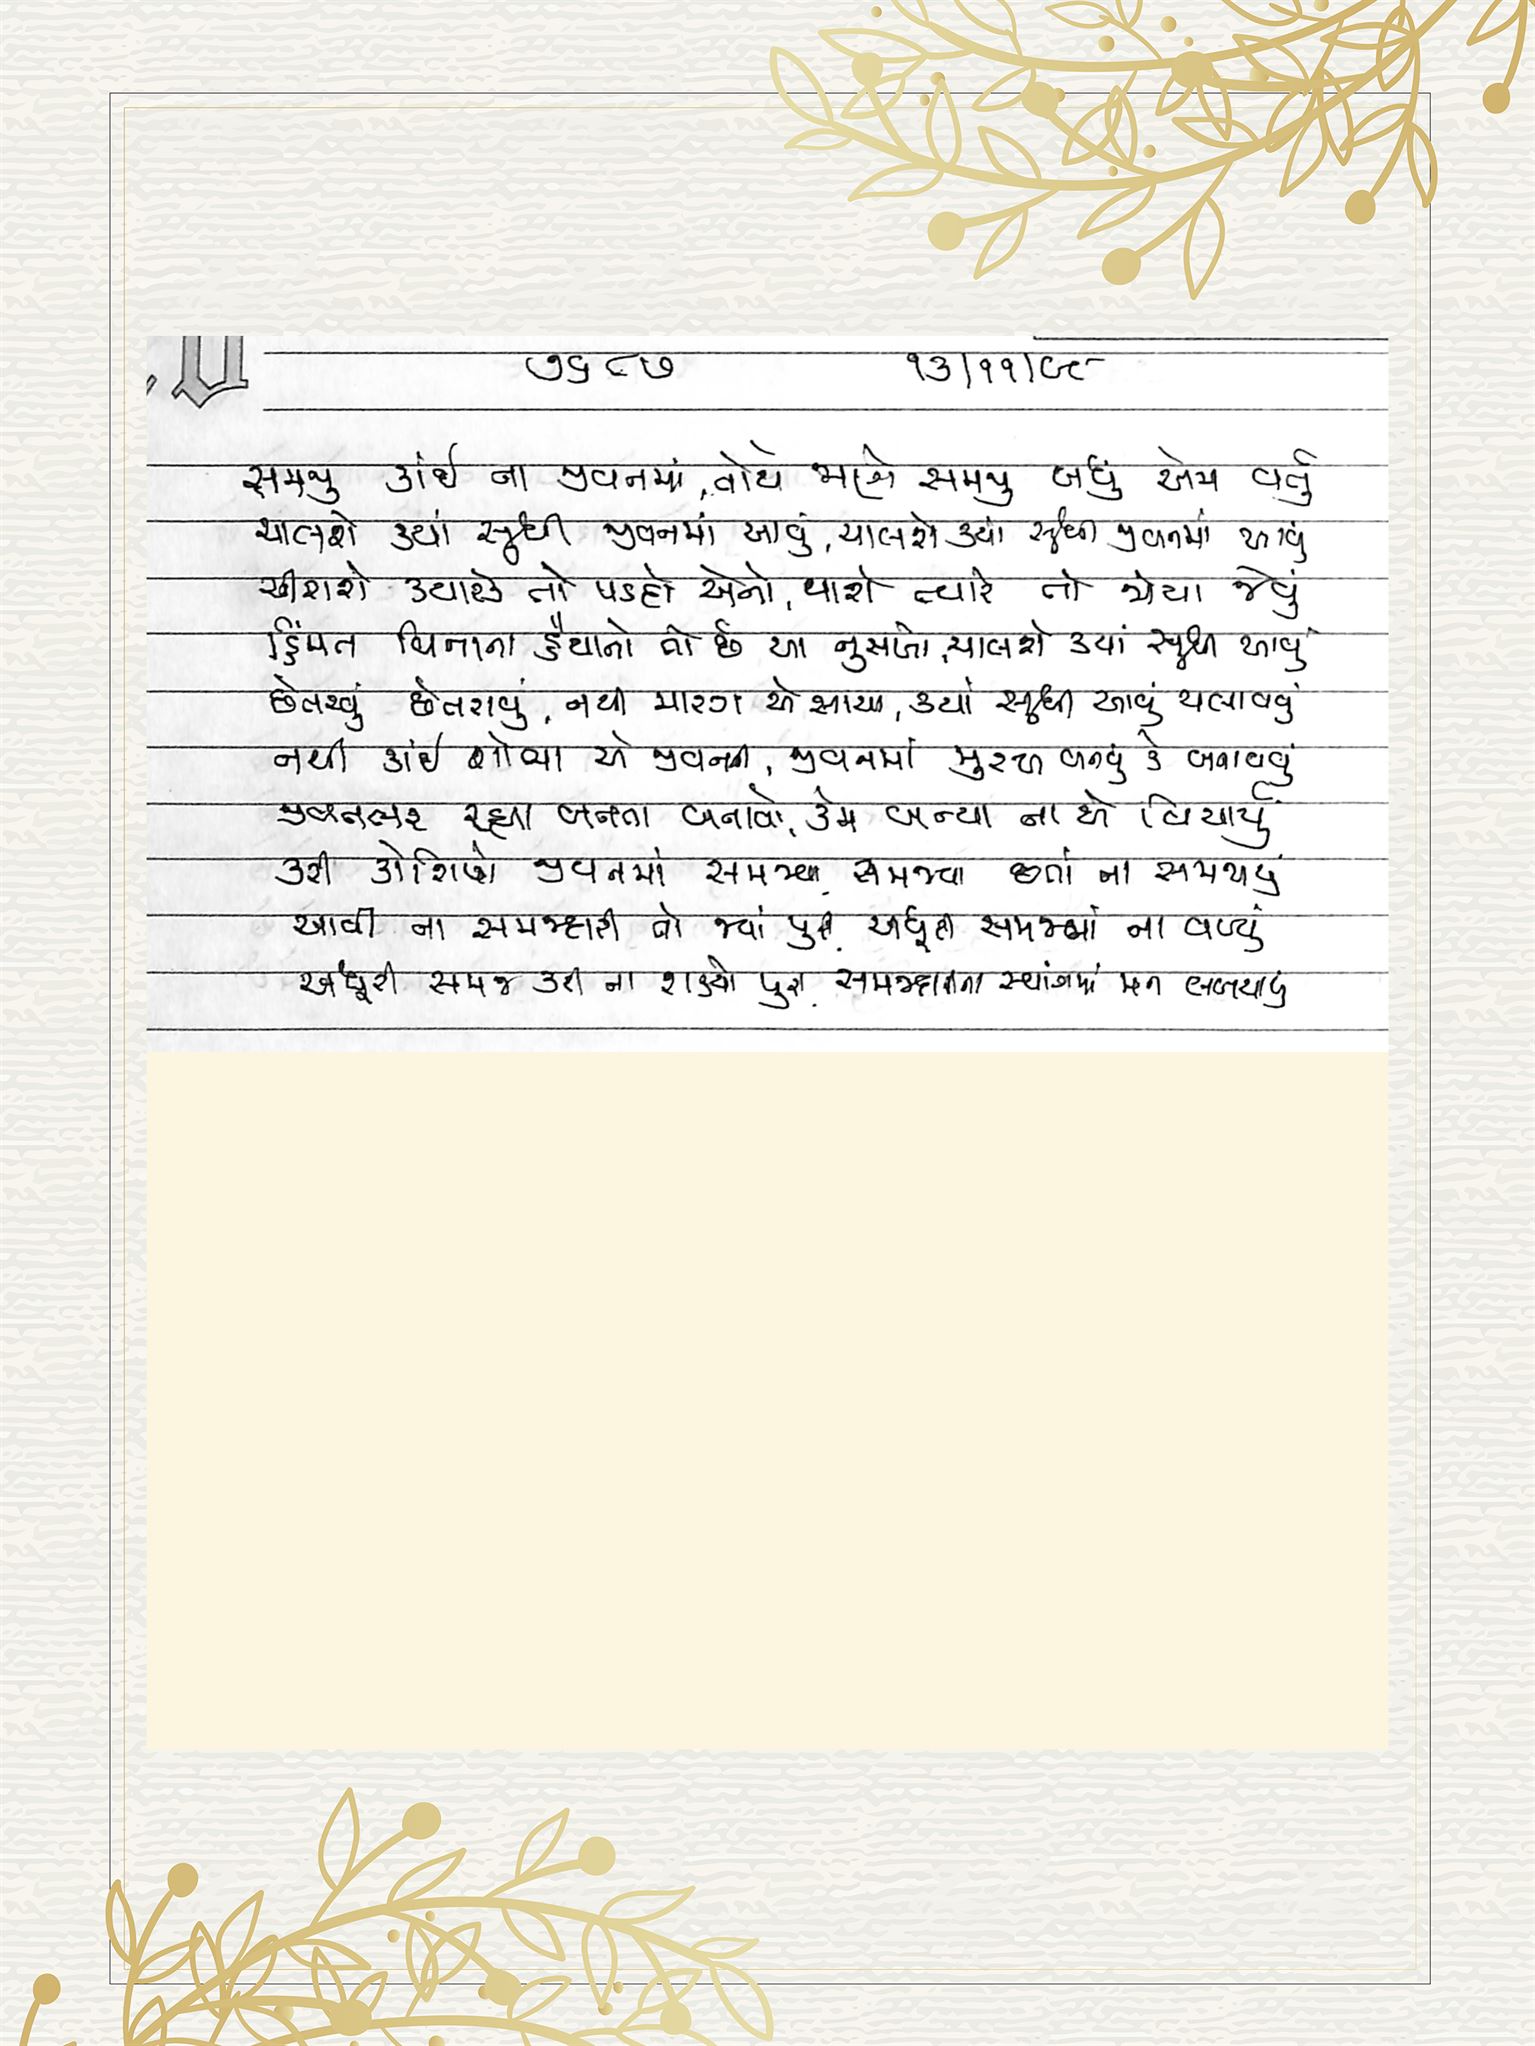 ૭૬૮૭ ૧૩/૧૧/૯૮
સમજુ કાંઈ ના જીવનમાં, તોયે જાણે સમજુ બધું એમ વર્તુ
ચાલશે ક્યાં સુધી જીવનમાં આવું, ચાલશે ક્યાં સુધી જીવનમાં આવું
ચીરાશે ક્યારેક તો પડદો એનો, થાશે ત્યારે તો જોયા જેવું
હિંમત વિનાના હૈયાનો તો છે આ નુસખો, ચાલશે ક્યાં સુધી આવું
છેતરવું છેતરાવું, નથી મારગ એ સાચા, ક્યાં સુધી આવું ચલાવવું
નથી કાંઈ શોભા એ જીવનની, જીવનમાં મુરખ બનવું કે બનાવવું
જીવનભર રહ્યા બનતા બનાવો, કેમ બન્યા ના એ વિચાર્યું
કરી કોશિશો જીવનમાં સમજવા, સમજવા છતાં ના સમજાયું
આવી ના સમજદારી તો જ્યાં પુરી, અધૂરી સમજમાં ના વળ્યું
અધૂરી સમજ કરી ના શક્યો પુરી, સમજદારીના સ્વાંગમાં મન લલચાયું